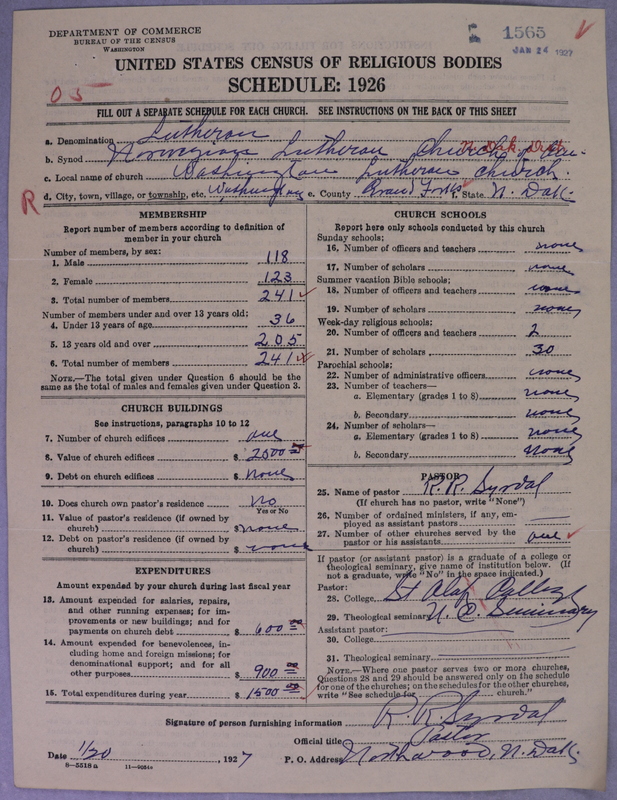 DEPARTMENT OF COMMERCE
BUREAU OF THE CENSUS
WASHINGTON
1565
JAN 24 1927
UNITED STATES CENSUS OF RELIGIOUS BODIES
SCHEDULE: 1926
05
FILL OUT A SEPARATE SCHEDULE FOR EACH CHURCH. SEE INSTRUCTIONS ON THE BACK OF THIS SHEET
a. Denomination Lutheran
b. Synod Norwegian Lutheran Church of Am. N. Dak. Dist.
c. Local name of church Washington Lutheran Church.
R
d. City, town, village, or township, etc. Washington e. County Grand Forks f. State N. Dak.
MEMBERSHIP
Report number of members according to definition of
member in your church
Number of members, by sex:
1. Male 118
2. Female 123
3. Total number of members 241
Number of members under and over 13 years old:
4. Under 13 years of age 36
5. 13 years old and over 205
6. Total number of members 241
NOTE.—The total given under Question 6 should be
same as the total of males and females given under Question 3.
CHURCH BUILDINGS
See instructions, paragraphs 10 to 12
7. Number of church edifices one
8. Value of church edifices $ 2500 00
9. Debt on church edifices $ None
10. Does church own pastor's residence No
Yes or No
11. Value of pastor's residence (if owned by
church) $ none
12. Debt on pastor's residence (if owned by
church) $ none
EXPENDITURES
Amount expended by your church during last fiscal year
13. Amount expended for salaries, repairs,
and other running expenses; for im-
provements or new buildings; and for
payments on church debt $ 600 00
14. Amount expended for benevolences, in-
cluding home and foreign missions; for
denominational support; and for all
other purposes $ 900 00
15. Total expenditures during year $ 1500 00
CHURCH SCHOOLS
Report here only schools conducted by this church
Sunday schools:
16. Number of officers and teachers none
17. Number of scholars none
Summer vacation Bible schools:
18. Number of officers and teachers none
19. Number of scholars none
Week-day religious schools:
20. Number of officers and teachers 2
21. Number of scholars 30
Parochial schools:
22. Number of administrative officers none
23. Number of teachers—
a. Elementary (grades 1 to 8) none
b. Secondary none
24. Number of scholars—
a. Elementary (grades 1 to 8) none
b. Secondary none
PASTOR
25. Name of pastor R. R. Syrdal
(If church has no pastor, write "None")
26. Number of ordained ministers, if any, em-
ployed as assistant pastors
27. Number of other churches served by the
pastor or his assistants one
If pastor (or assistant pastor) is a graduate of a college or
theological seminary, give name of institution below. (If
not a graduate, write "No" in the space indicated.)
Pastor:
28. College St Olaf College
29. Theological seminary U. C. Seminary
Assistant pastor:
30. College
31. Theological seminary
NOTE.—Where one pastor serves two or more churches,
Questions 28 and 29 should be answered only on the schedule
for one of the churches; on the schedules for the other churches,
write "See schedule for church."
Signature of person furnishing information R. R. Syrdal
Official title Pastor
Date 1/20, 1927 P. O. Address Northwood, N. Dak.
8—5518 a 11—9054